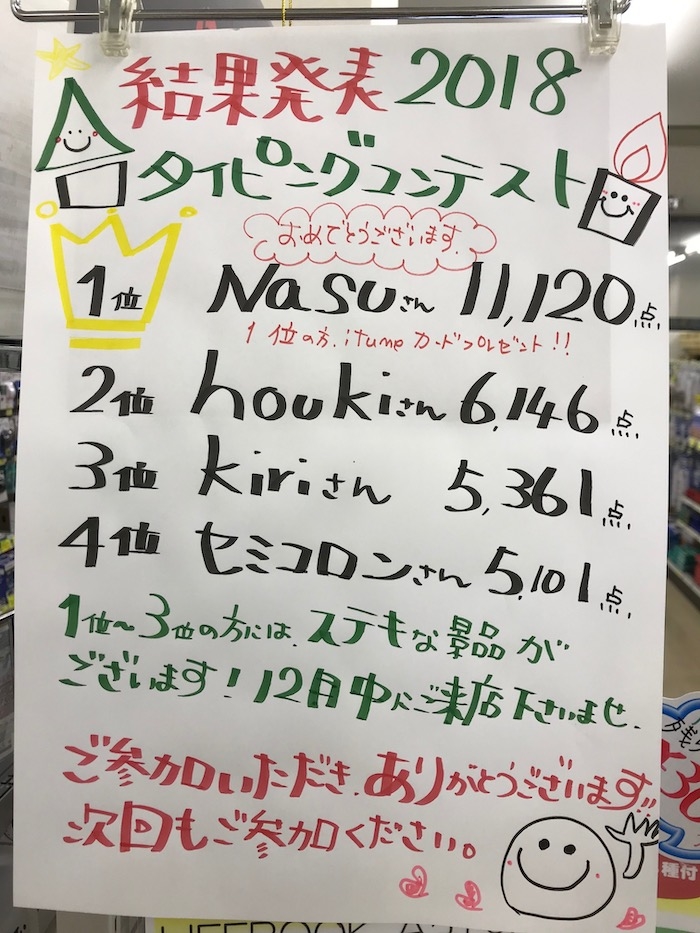 結果発表2018
タイピングコンテスト
おめでとうございます。
1位 Nasuさん 11,120点
1位の方、ituneカードプレゼント!!
2位 houkiさん 6,146点
3位 kiriさん 5,361点
4位 セミコロンさん 5,101点
1位〜3位の方には、ステキな景品が
ございます!12月中にご来店下さいませ。
ご参加いただき、ありがとうございます!!
次回もご参加ください。
種付